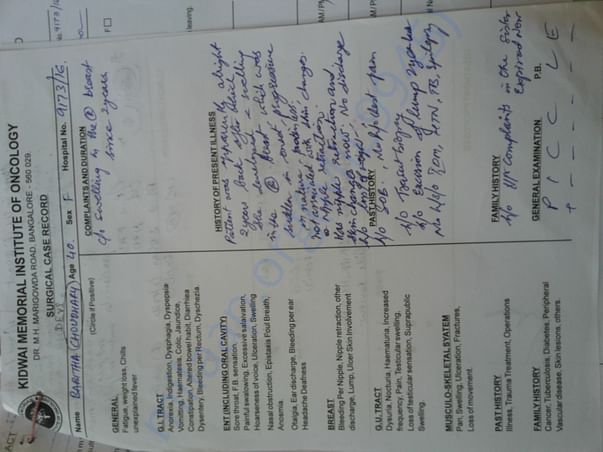 KIDWAI MEMORIAL INSTITUTE OF ONCOLOGY
DR. M.H. MARIGOWDA ROAD, BANGALORE - 560 029.
SURGICAL CASE RECORD
DEVI
Name BABITHA (CHOUDHARY) Age 40 Sex F Hospital No. 9173/16
(Circle if Positive)
GENERAL
Fatigue, weight loss, Chills
unexplained fever
G.I. TRACT
Anorexia, Indigestion, Dysphagia, Dyspepsia
Vomiting, Haematesis, Colic, Jaundice,
Constipation, Altered bowel habit, Diarrhea
Dysentery, Bleeding per Rectum, Dyschezia.
ENT (INCLUDING ORAL CAVITY)
Sore throat, F.B. sensation.
Painful swallowing, Excessive salavation,
Hoarseness of voice, Ulceration, Swelling
Nasal obstruction, Epistaxis Foul Breath,
Anosmia.
Otalgia, Ear discharge, Bleeding per ear
Headache Deafness
BREAST
Bleeding Per Nipple, Nipple retraction, other
discharge, Lump, Ulcer Skin Involvement
G.U. TRACT
Dysuria, Nocturia, Haematuria, Increased
frequency, Pain, Testicular swelling,
Loss of testicular sensation, Suprapubic
Swelling.
MUSCULO-SKELETAL SYATEM
Pain, Swelling, Ulceration, Fractures,
Loss of movement.
PAST HISTORY
Illness, Trauma Treatment, Operations
FAMILY HISTORY
Cancer, Tuberculosis, Diabetes, Peripheral
Vascular disease, Skin lesions, others.
COMPLAINTS AND DURATION
c/o swelling in the (R) breast
since 2 years
HISTORY OF PRESENT ILLNESS
Patient was apparently alright
2 years back after which
she developed a swelling
in the (R) breast which was
smaller in onset progressive
in nature, painless.
not associated with skin changes
or nipple retraction.
Has nipple retraction and
skin changes now. No discharge
PAST HISTORY
No h/o chest pain
h/o Breast Surgery
Excision of lump 2 years back
No h/o DM, HTN, TB, Epilepsy
FAMILY HISTORY
h/o complaints in the Sister
Expired now
GENERAL EXAMINATION P.B.
P I C C L E
+ - - - - -